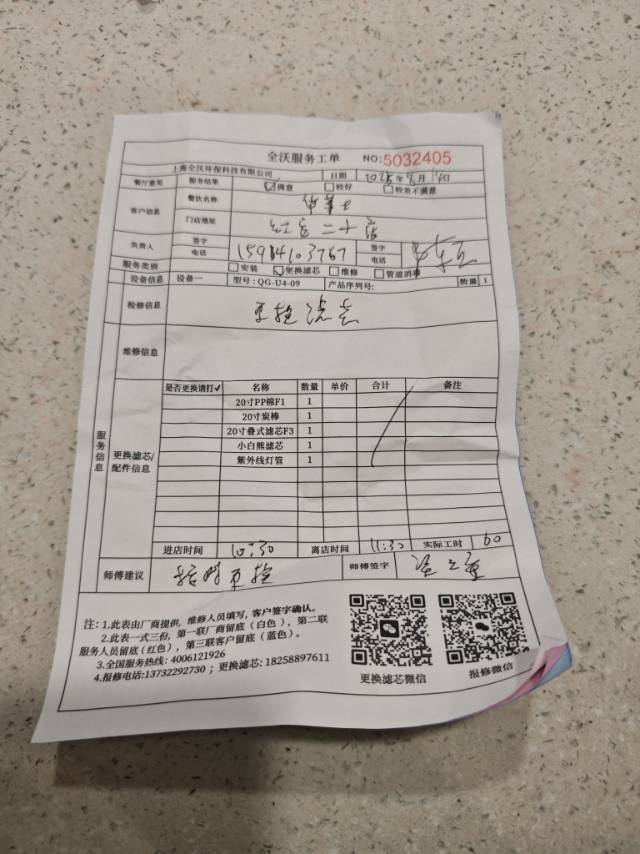 全沃服务工单 NO:5032405
上海全沃环保科技有限公司 日期 2025年8月14日
餐厅意见 服务结果 ☑满意 □较好 □较差不满意
客户信息 餐饮名称 华莱士
门店地址 二十店
负责人 签字 签字
电话 15914103767 电话
服务类别 □安装 ☑更换滤芯 □维修 □管道消毒
设备信息 设备一 型号:QG-U4-09 产品序列号: 数量 1
检修信息 更换滤芯
维修信息
服务信息
更换滤芯/配件信息
是否更换请打✓ 名称 数量 单价 合计 备注
20寸PP棉F1 1
20寸炭棒 1
20寸叠式滤芯F3 1
小白熊滤芯 1
紫外线灯管 1
进店时间 10:30 离店时间 11:30 实际工时 60
师傅建议 按时更换 师傅签字
注: 1.此表由厂商提供, 维修人员填写, 客户签字确认。
2.此表一式三份, 第一联厂商留底(白色), 第二联
服务人员留底(红色), 第三联客户留底(蓝色)。
3.全国服务热线: 4006121926
4.报修电话:13732292730 ; 更换滤芯: 18258897611
更换滤芯微信 报修微信